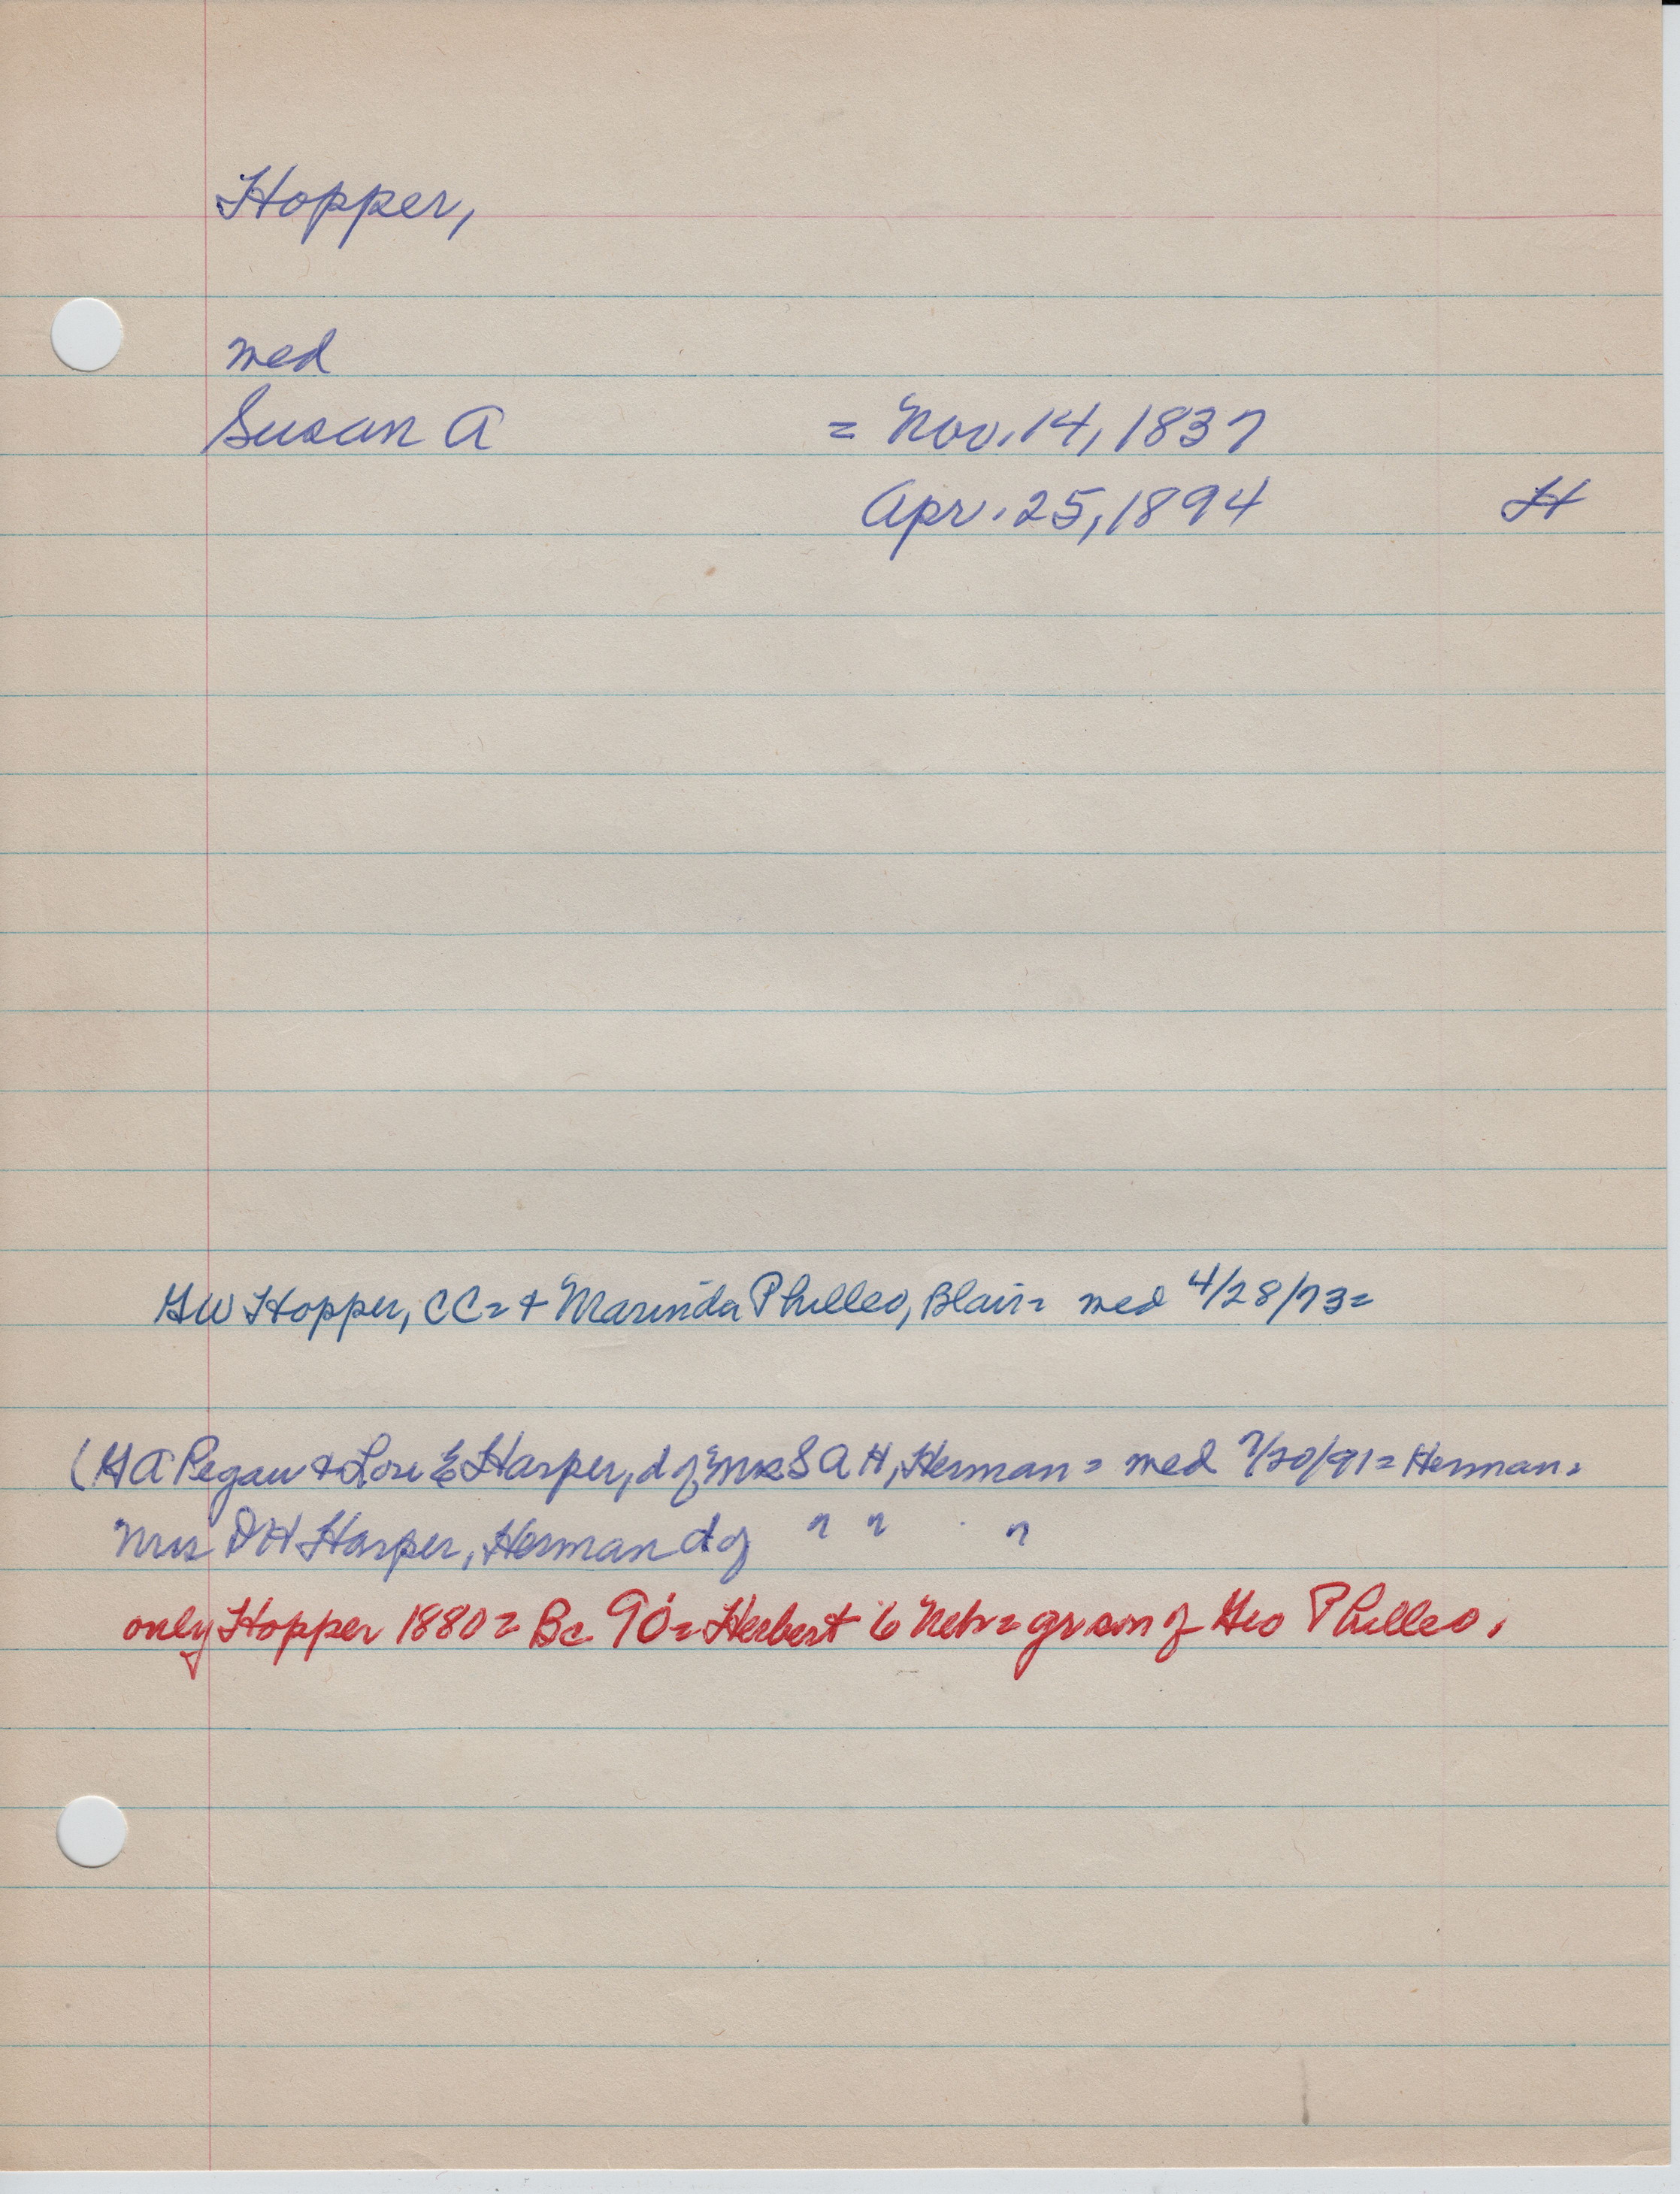 Hopper,
med
Susan A = Nov. 14, 1837
Apr. 25, 1894 H
GW Hopper, CC = + Marinda Philleo, Blair = med 4/28/73 =
(GA Pegau + Lou E Harper, d of Mrs S A H, Herman = med 7/20/91 = Herman =
Mrs DH Harper, Herman d of " " "
only Hopper 1880 = Bc 90 = Herbert 6 Neb = gr son of Geo Philleo.